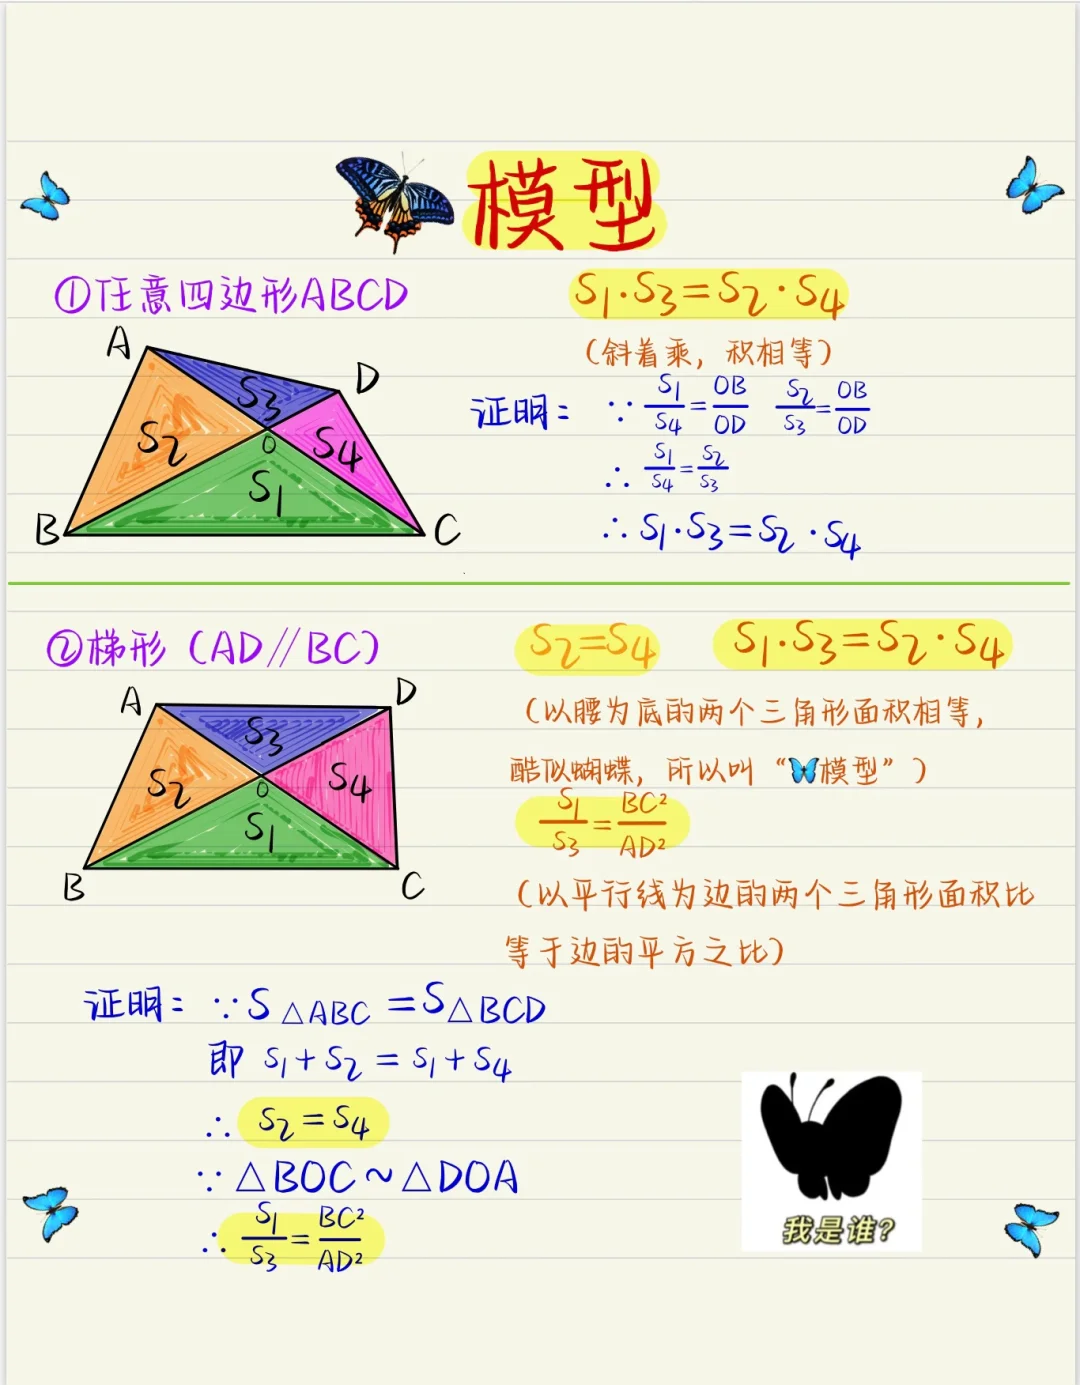 模型
①任意四边形ABCD
S₁·S₃=S₂·S₄
(斜着乘，积相等)
A
D
S₃
S₂
O
S₄
S₁
B
C
证明： ∵ S₁/S₄=OB/OD S₂/S₃=OB/OD
∴ S₁/S₄=S₂/S₃
∴ S₁·S₃=S₂·S₄
②梯形(AD//BC)
S₂=S₄ S₁·S₃=S₂·S₄
A
D
S₃
S₂
O
S₄
S₁
B
C
(以腰为底的两个三角形面积相等，
酷似蝴蝶，所以叫“模型”)
S₁/S₃=BC²/AD²
(以平行线为边的两个三角形面积比
等于边的平方之比)
证明： ∵S△ABC=S△BCD
即 S₁+S₂=S₁+S₄
∴ S₂=S₄
∵△BOC~△DOA
∴ S₁/S₃=BC²/AD²
我是谁?